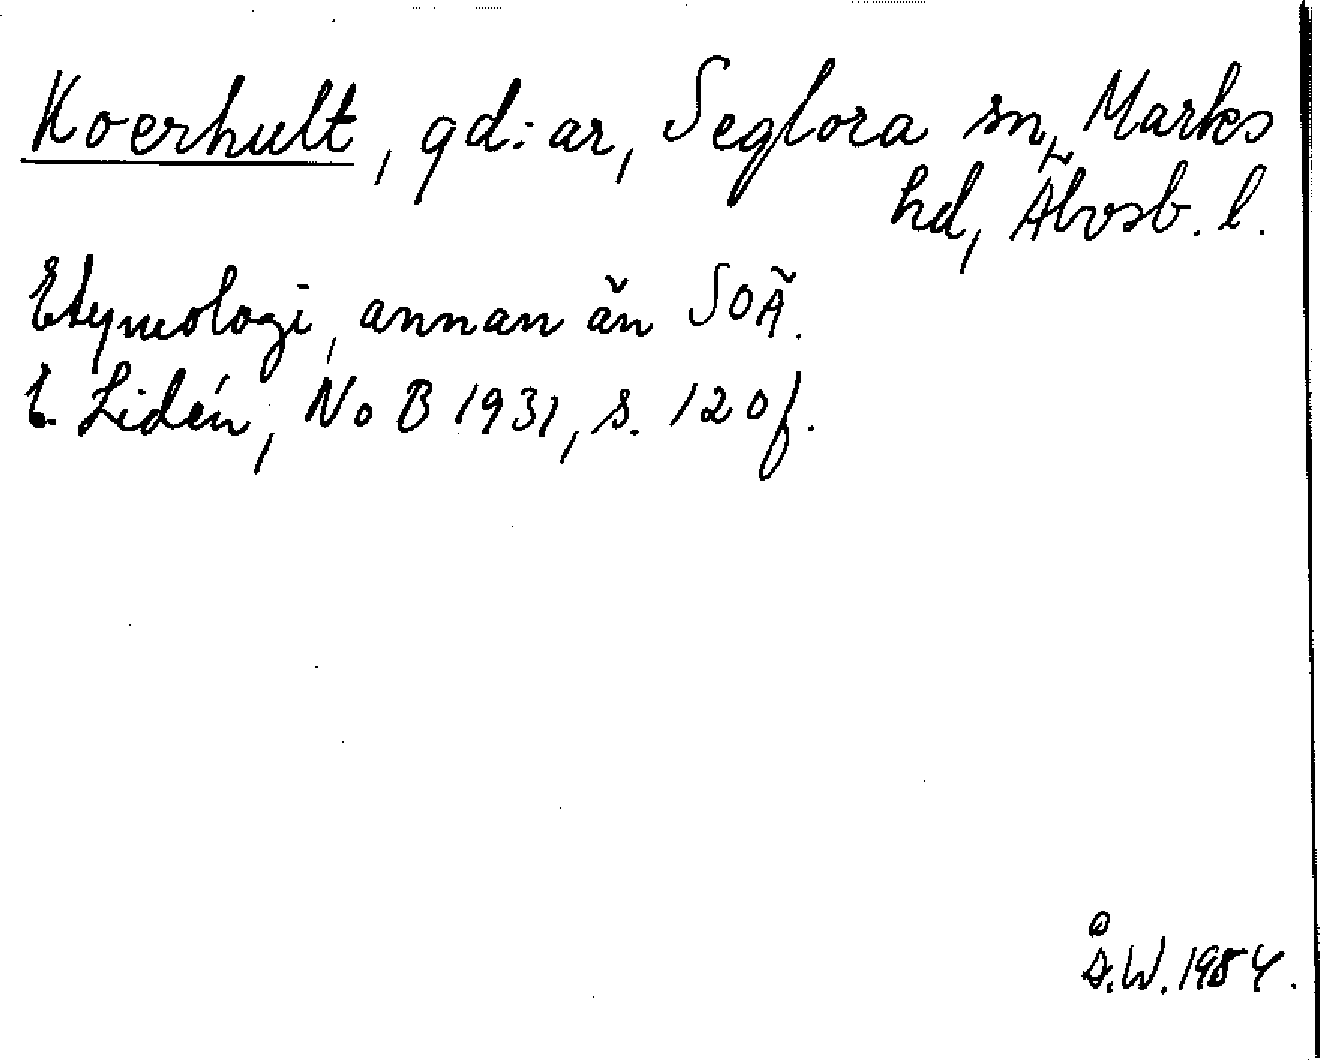 Koerhult, gd:ar, Seglora sn, Marks
hd, Älvsb. l.
Etymologi, annan än SOÄ.
E. Lidén, NoB 1931, s. 120f.
Å.W. 1984.